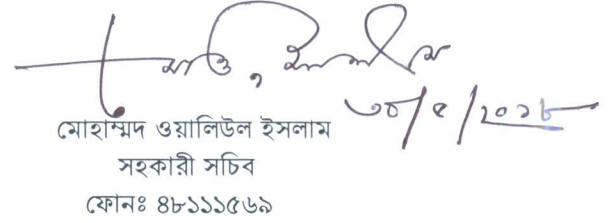 ৩০/৫/২০১৮
মোহাম্মদ ওয়ালিউল ইসলাম
সহকারী সচিব
ফোনঃ ৪৮১১১৫৬৯